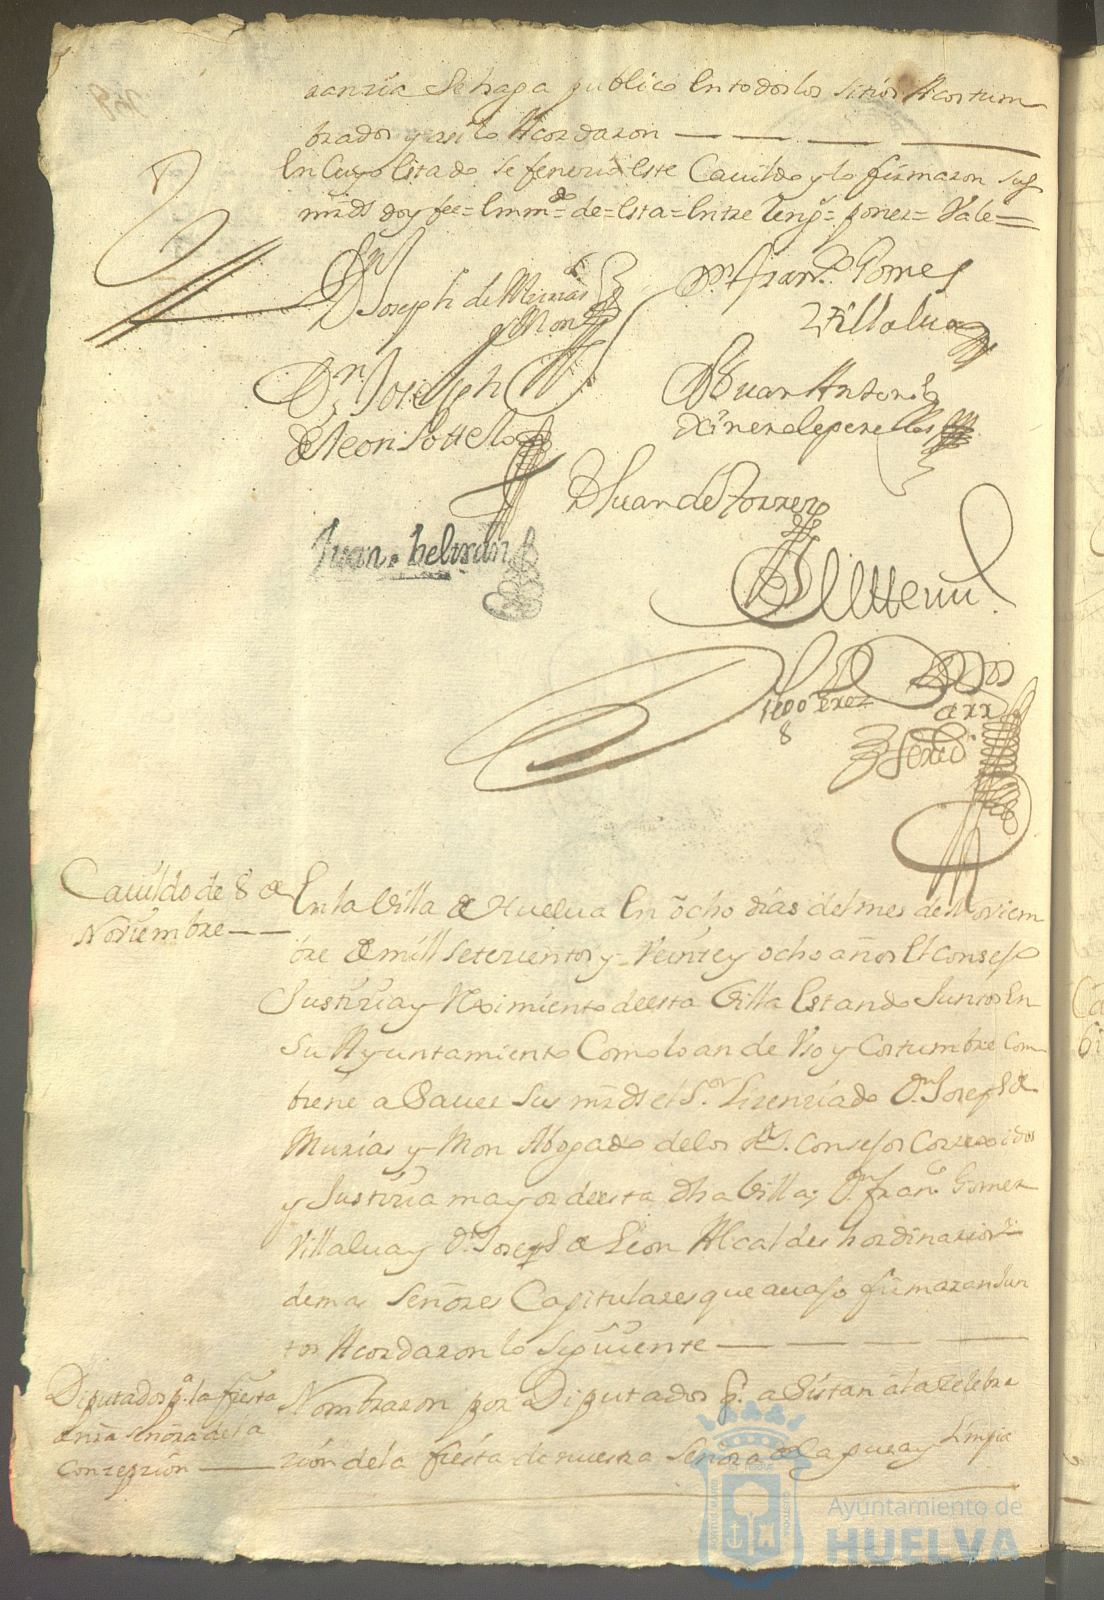 ranzia Se haga publico En todos los sitios Acostum
brados y asi lo Acordaron
En Cuyo Estado se feneció Este Cauildo y lo firmaron sus
mrds doy fee = Emmdo = de = Esta = Entre Reng.s = poner = Vale =
Dn Joseph de Murias
y Mon
Dn Fran.co Gomes
Villalua
Dn Joseph
de leon Sottelo
D Juan Antonio
Ximenes le perellos
D Juan de Torres
Juan beltran
Diego Perez
Cauildo de 8 de
Nouiembre
En la Villa de Huelua En ocho dias del mes de Noviem
bre de mill Setezientos y Veinte y ocho años El Consejo
Justizia y Reximiento de esta Villa Estando Juntos En
Su Ayuntamiento Como lo an de Vso y Costumbre Com
biene a Sauer Sus mrds el Sr. Lizenziado Dn Joseph de
Murias y Mon Abogado de los Rs. Consejos Correxidor
y Justizia mayor de esta dha Villa; Dn fran.co Gomez
Villalua y Dn Joseph de Leon Alcaldes hordinarios y
demas Señores Capitulares que auajo firmaran Jun
tos Acordaron lo Siguiente
Diputados pa. la fiesta
de nra Señora de la
Conzepzion
Nombraron por Diputados pa. asistan a la zelebra
zion de la fiesta de nuestra Señora de la pura y Limpia
Ayuntamiento de
HUELVA